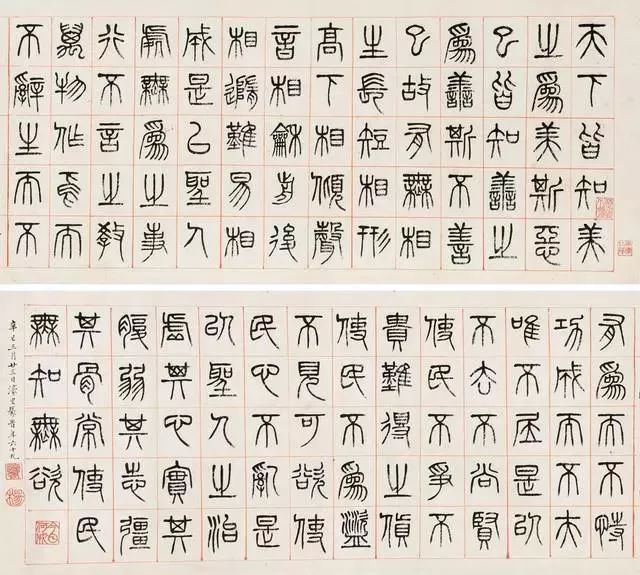 天下皆知美
之爲美斯惡
已皆知善之
爲善斯不善
已故有無相
生長短相形
高下相傾聲
音相龢前後
相隨難易相
成是㠯聖人
處無爲之事
行不言之教
萬物作焉而
不辭生而不
有爲而不恃
功成而不夫
唯不居是㠯
不去不尚賢
使民不爭不
貴難得之貨
使民不爲盜
不見可欲使
民心不亂是
㠯聖人之治
虛其心實其
腹弱其志彊
其骨常使民
無知無欲
辛巳三月廿三日濠叟篆旹年六十九